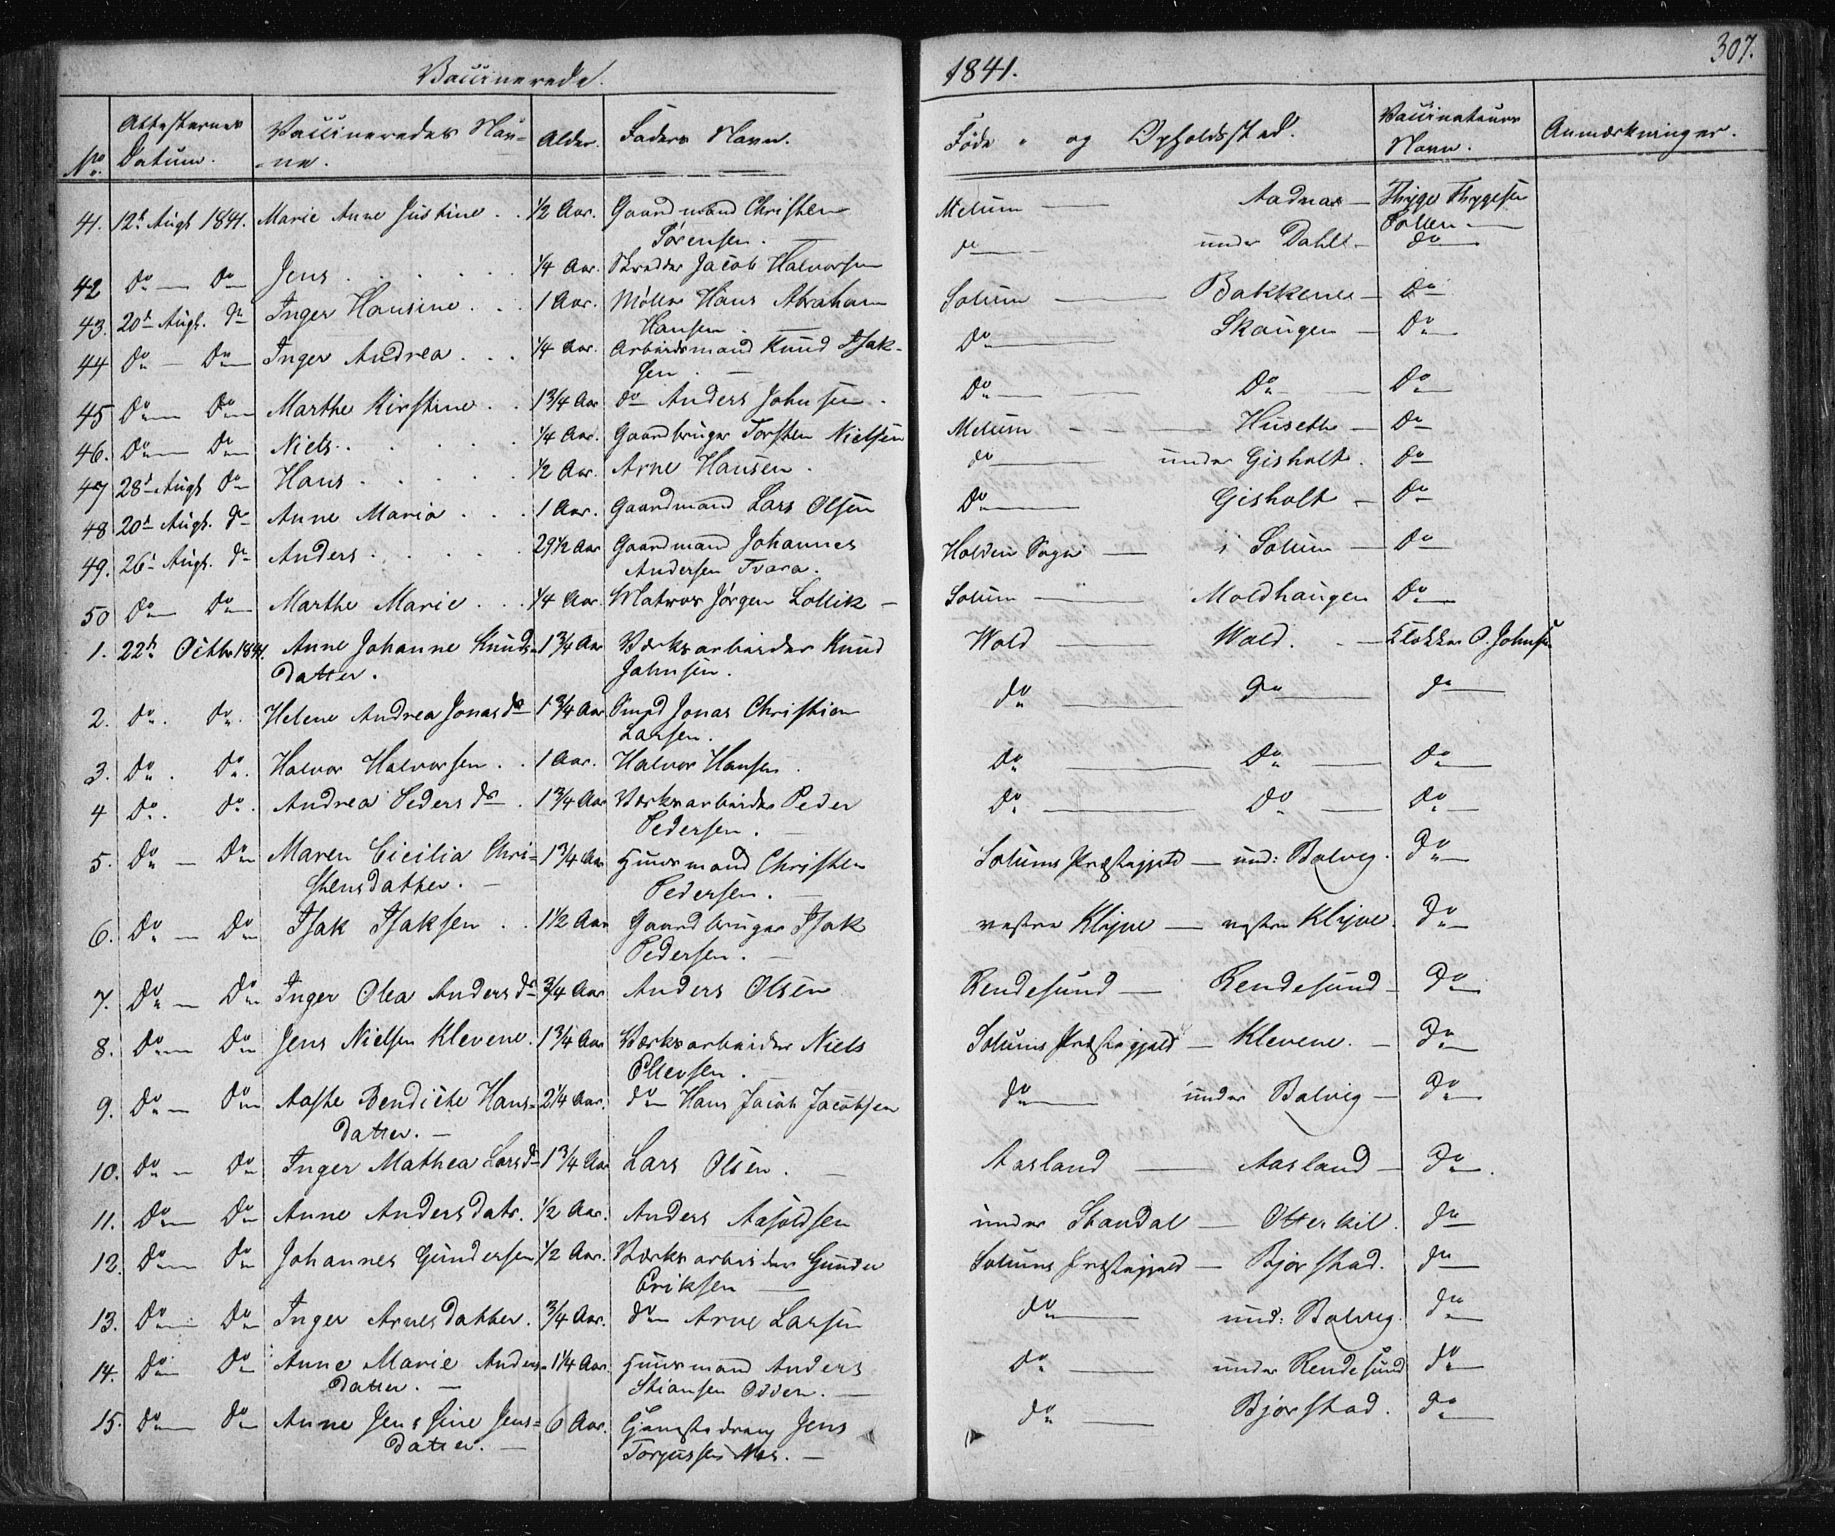 Vaccinerede.
1841.
307.
No.
Attesternes Datum.
Vaccineredes Nav=
=ne.
Alder.
Faders Navn.
Føde - og Opholdssted.
Vaccinateurs Navn.
Anmærkninger.
41. 12te Augt 1841. Marie Anne Justine . . 1/2 Aar. Gaardmand Christen Melum — Aadnas — Thyge Thygesen
Sørensen. — Sollen —
42 do — do Jens . . . . . 1/4 Aar. Skredder Jacob Halvorsen do — under Dahls — do
43. 20de Augt. do Inger Hansine . . . 1 Aar. Møller Hans Abraham Solum — Bakkene — do
Hansen. —
44 do — do Inger Andrea . . . 1/4 Aar. Arbeidsmand Knud Isak- do — Skougen — do
sen. —
45 do — do Marthe Kirstine . . 1 3/4 Aar do Anders Johnsen . do — do — do
46. do — do Niels . . . . . 1/4 Aar. Gaardbruger Torsten Nielsen Melum — Huseth — do
47 28de Augt do Hans . . . . . 1/2 Aar. Arne Hansen . do — under Gisholt. do
48 20de Augt. do Anne Maria . . . 1 Aar. Gaardmand Lars Olsen do — Gisholt — do
49. 26de Augt. do Anders . . . . . 29 1/2 Aar Gaardmand Johannes Holden Sogn — i Solum — do
Andersen Tvara.
50 do — do Marthe Marie . . . 1/4 Aar. Matros Jørgen Lollik — Solum — Moldhaugen do
1. 22de Octbr 1841. Anne Johanne Knuds= 1 3/4 Aar Værksarbeider Knud Wold — Wold. — Klokker O. Johnsen
datter. Johnsen.
2. do. do. Helene Andrea Jonasdr 1 3/4 Aar Smed Jonas Christian do do — do
Larsen.
3. do. do. Halvor Halvorsen . . 1 Aar. Halvor Hansen . do — do — do
4 do. do. Andrea Pedersdr . 1 3/4 Aar Værksarbeider Peder do — do — do
Pedersen. —
5. do — do Maren Cicilia Chri= 1 3/4 Aar Huusmand Christen Solums Præstegjeld — und: Bolvig. do
stensdatter. — Pedersen. —
6. do — do Isak Isaksen . . 1 1/2 Aar Gaardbruger Isak vestre Klyve — vestre Klyve. do
Pedersen. —
7. do — do Inger Olea Andersdr 3/4 Aar Anders Olsen Rendesund — Rendesund — do
8. do — do Jens Nielsen Klevene. 1 3/4 Aar Værksarbeider Niels Solums Præstegjeld — Klevene. — do
Ellevsen.
9. do — do Aaste Bendicte Hans= 2 1/4 Aar. do Hans Jacob Jacobsen do — under Bolvig — do
datter. —
10. do — do Inger Mathea Larsdr 1 3/4 Aar Lars Olsen. — Aasland — Aasland — do.
11. do — do Anne Andersdatr. 1/2 Aar. Anders Aasoldsen under Skandal — Otterkil. do
12. do — do Johannes Gundersen 1/2 Aar. Værksarbeider Gunder Solums Præstegjeld — Bjørstad. do
Eriksen —
13. do — do Inger Arnesdatter. 3/4 Aar. do Arne Larsen do — und: Bolvig. do
14. do do Anne Marie Anders= 1 1/4 Aar. Huusmand Anders do — under Rendesund do
datter. — Stiansen Odden. —
15. do — do Anne Jensine Jens= 6 Aar. Tjenestedreng Jens do — Bjørstad. do
datter. — Torjussen Næs. —